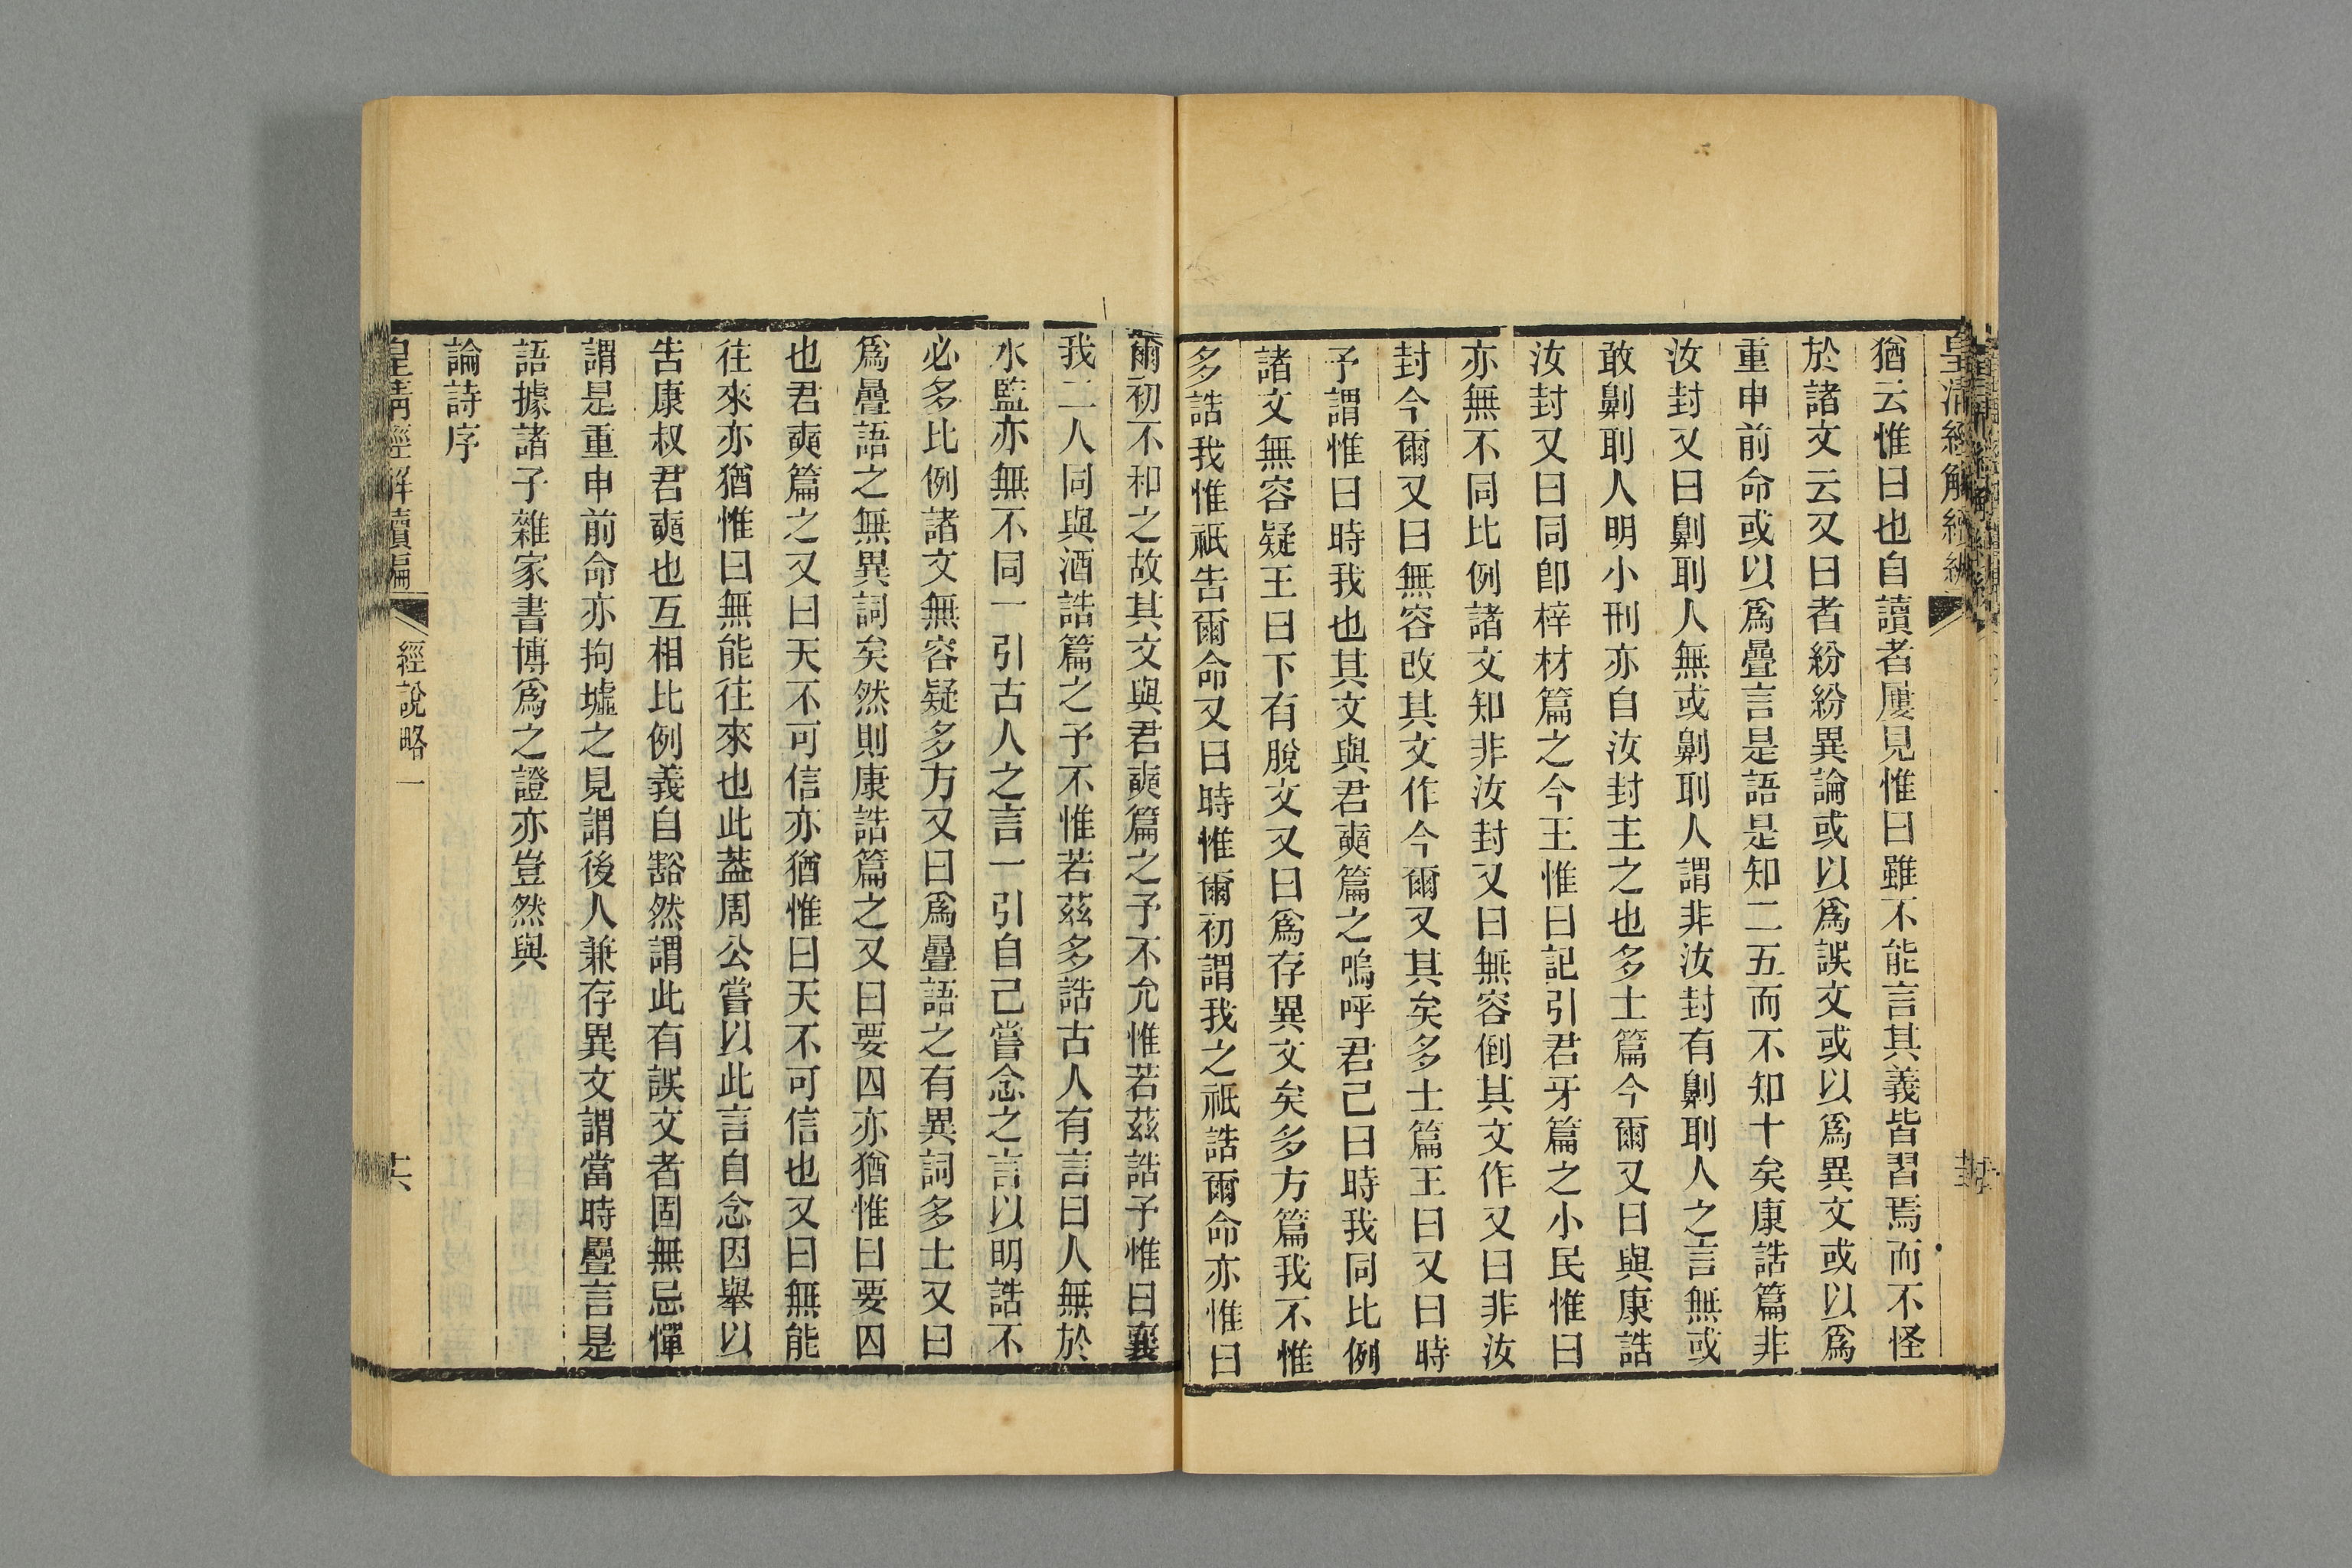 皇清經解續編
猶云惟曰也自讀者屢見惟曰雖不能言其義皆習焉而不怪
於諸文云又曰者紛紛異論或以爲誤文或以爲異文或以爲
重申前命或以爲疊言是語是知二五而不知十矣康誥篇非
汝封又曰劓刵人無或劓刵人謂非汝封有劓刵人之言無或
敢劓刵人明小刑亦自汝封主之也多士篇今爾又曰與康誥
汝封又曰同卽梓材篇之今王惟曰記引君牙篇之小民惟曰
亦無不同比例諸文知非汝封又曰無容倒其文作又曰非汝
封今爾又曰無容改其文作今爾又其矣多士篇王曰又曰時
予謂惟曰時我也其文與君奭篇之嗚呼君己曰時我同比例
諸文無容疑王曰下有脫文又曰爲存異文矣多方篇我不惟
多誥我惟祇告爾命又曰時惟爾初謂我之祇誥爾命亦惟曰
爾初不和之故其文與君奭篇之予不允惟若茲誥予惟曰襄
我二人同與酒誥篇之予不惟若茲多誥古人有言曰人無於
水監亦無不同一引古人之言一引自己嘗念之言以明誥不
必多比例諸文無容疑多方又曰爲疊語之有異詞多士又曰
爲疊語之無異詞矣然則康誥篇之又曰要囚亦猶惟曰要囚
也君奭篇之又曰天不可信亦猶惟曰天不可信也又曰無能
往來亦猶惟曰無能往來也此葢周公嘗以此言自念因舉以
告康叔君奭也互相比例義自豁然謂此有誤文者固無忌憚
謂是重申前命亦拘墟之見謂後人兼存異文謂當時疊言是
語據諸子雜家書博爲之證亦豈然與
論詩序
皇清經解續編
經說略一